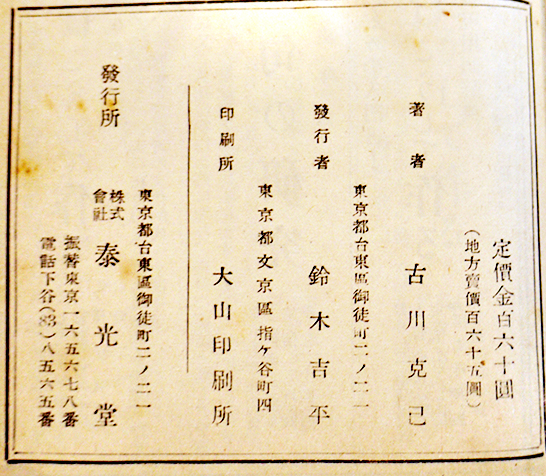 定價金百六十圓
（地方賣價百六十五圓）
著者 古川克己
東京都台東區御徒町二ノ二一
發行者 鈴木吉平
東京都文京區指ケ谷町四
印刷所 大山印刷所
東京都台東區御徒町二ノ二一
發行所 株式會社 泰光堂
振替東京一六五六七八番
電話下谷（83）八五六五番